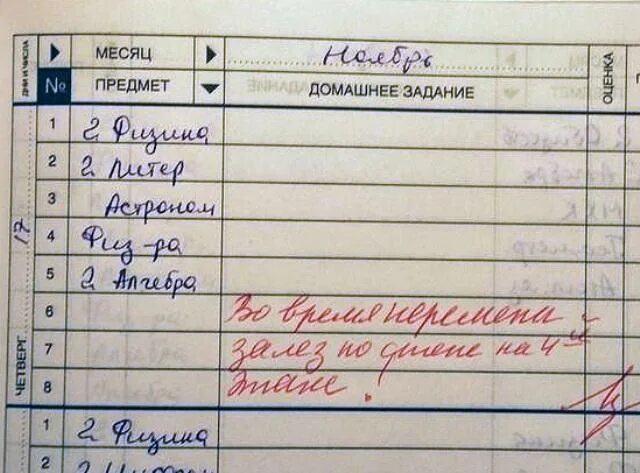 ДНИ И ЧИСЛА МЕСЯЦ Ноябрь ОЦЕНКА
№ ПРЕДМЕТ ДОМАШНЕЕ ЗАДАНИЕ
ЧЕТВЕРГ 17
1 2 Физика
2 2 Литер
3 Астроном
4 Физ-ра
5 2 Алгебра
6 Во время перемены
7 залез по стене на 4ый
8 этаж!
1 2 Физика
2 2